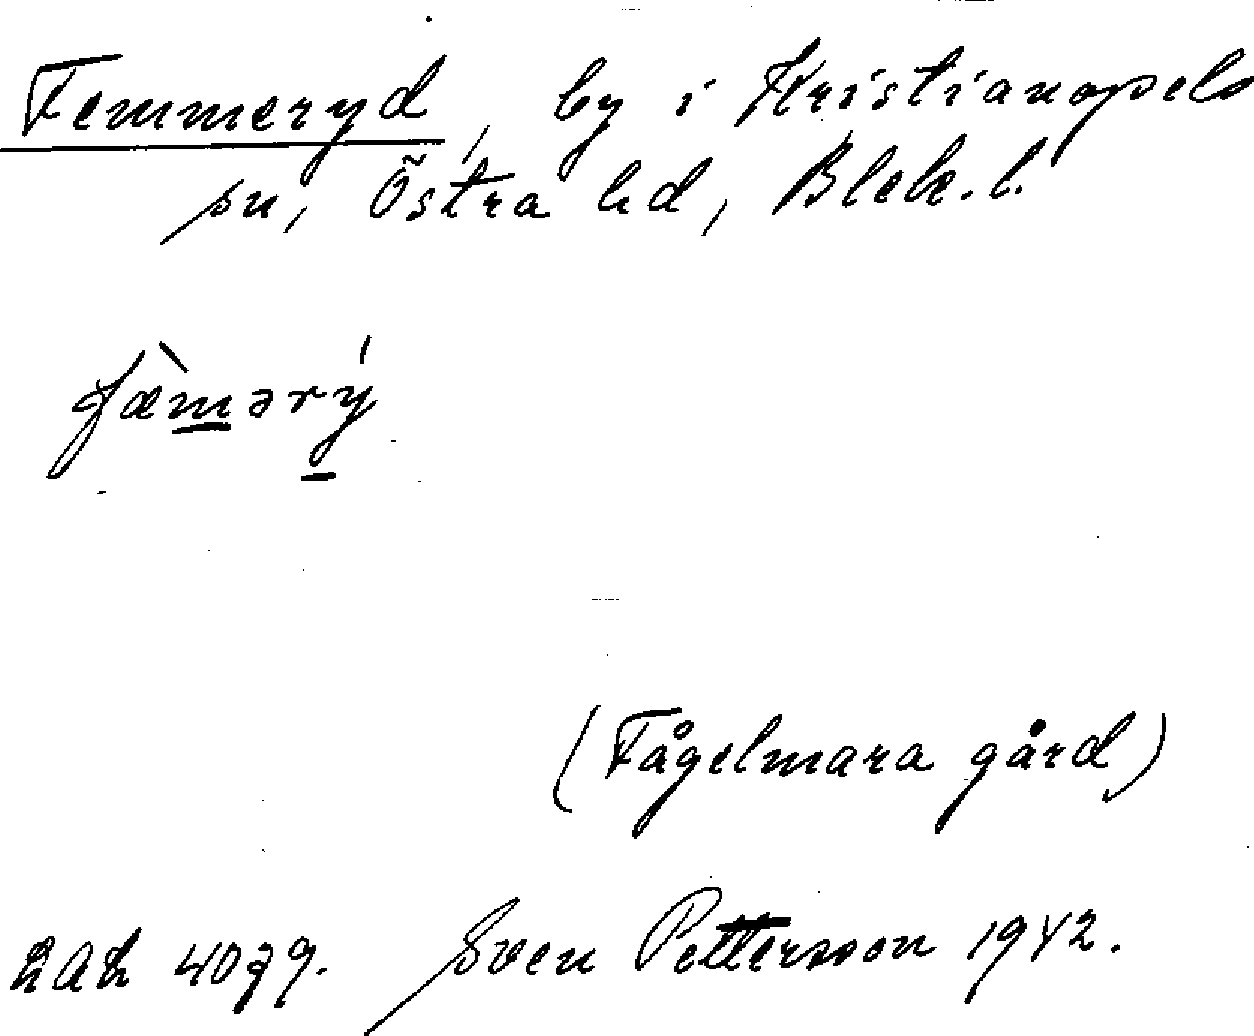 Femmeryd, by i Kristianopels
sn, Östra hd, Blek. l.
fæ̀mərý
(Fågelmara gård)
LAL 4079. Sven Pettersson 1942.